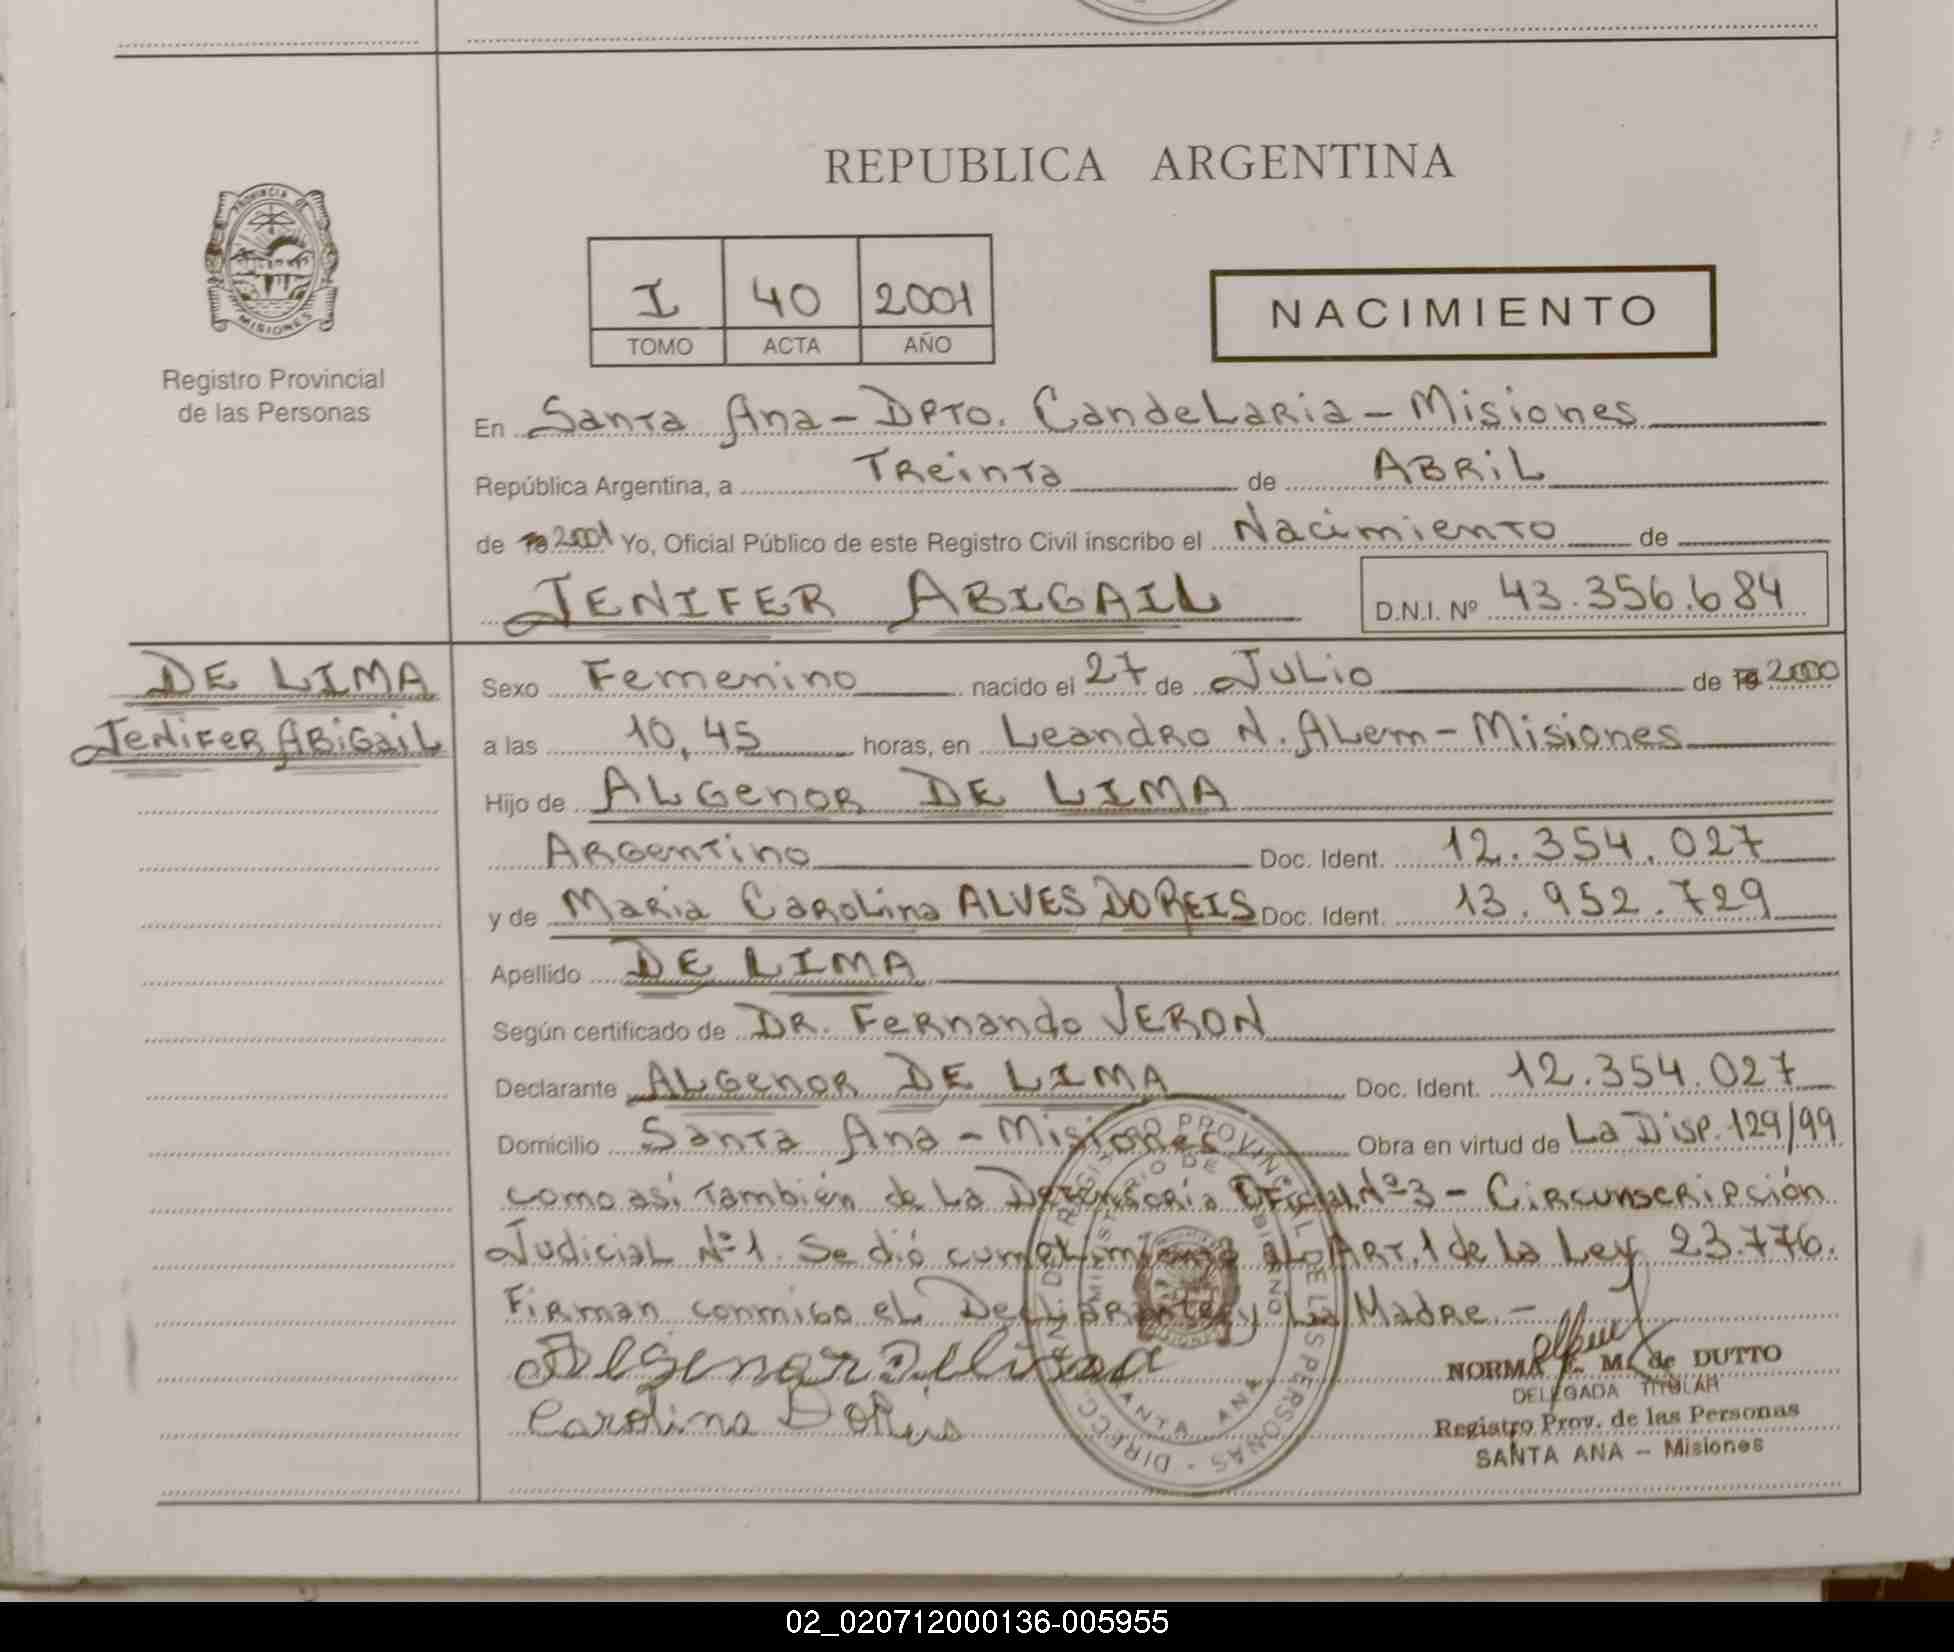 REPUBLICA ARGENTINA
PROVINCIA DE MISIONES
Registro Provincial
de las Personas
I 40 2001
TOMO ACTA AÑO
NACIMIENTO
En Santa Ana - Dpto. Candelaria - Misiones
República Argentina, a Treinta de Abril
de 2001 Yo, Oficial Público de este Registro Civil inscribo el Nacimiento de
JENIFER ABIGAIL D.N.I. Nº 43.356.684
DE LIMA
Jenifer Abigail
Sexo Femenino nacido el 27 de Julio de 19 2000
a las 10,45 horas, en Leandro N. Alem - Misiones
Hijo de ALGENOR DE LIMA
Argentino Doc. Ident. 12.354.027
y de Maria Carolina ALVES DO REIS Doc. Ident. 13.952.729
Apellido DE LIMA
Según certificado de DR. Fernando VERON
Declarante ALGENOR DE LIMA Doc. Ident. 12.354.027
Domicilio Santa Ana - Misiones Obra en virtud de La Disp. 129/99
como asi también de la Defensoría Oficial Nº 3 - Circunscripsión
Judicial Nº 1. Se dió cumplimiento al Art. 1 de la Ley 23.776.
Firman conmigo el Declarante y La Madre. -
Algenor De Lima
Carolina DoReis
REGISTRO PROVINCIAL DE LAS PERSONAS
SANTA ANA
NORMA E. M. de DUTTO
DELEGADA TITULAR
Registro Prov. de las Personas
SANTA ANA - Misiones
02_020712000136-005955